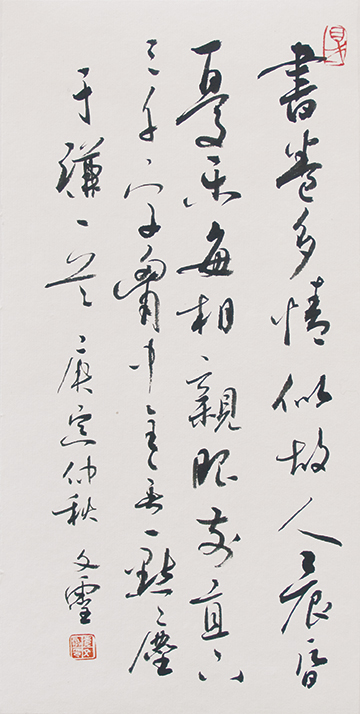 書卷多情似故人晨昏
憂樂每相親眼前直下
三千字胸中全無一點塵
于謙一首 庚寅仲秋 文